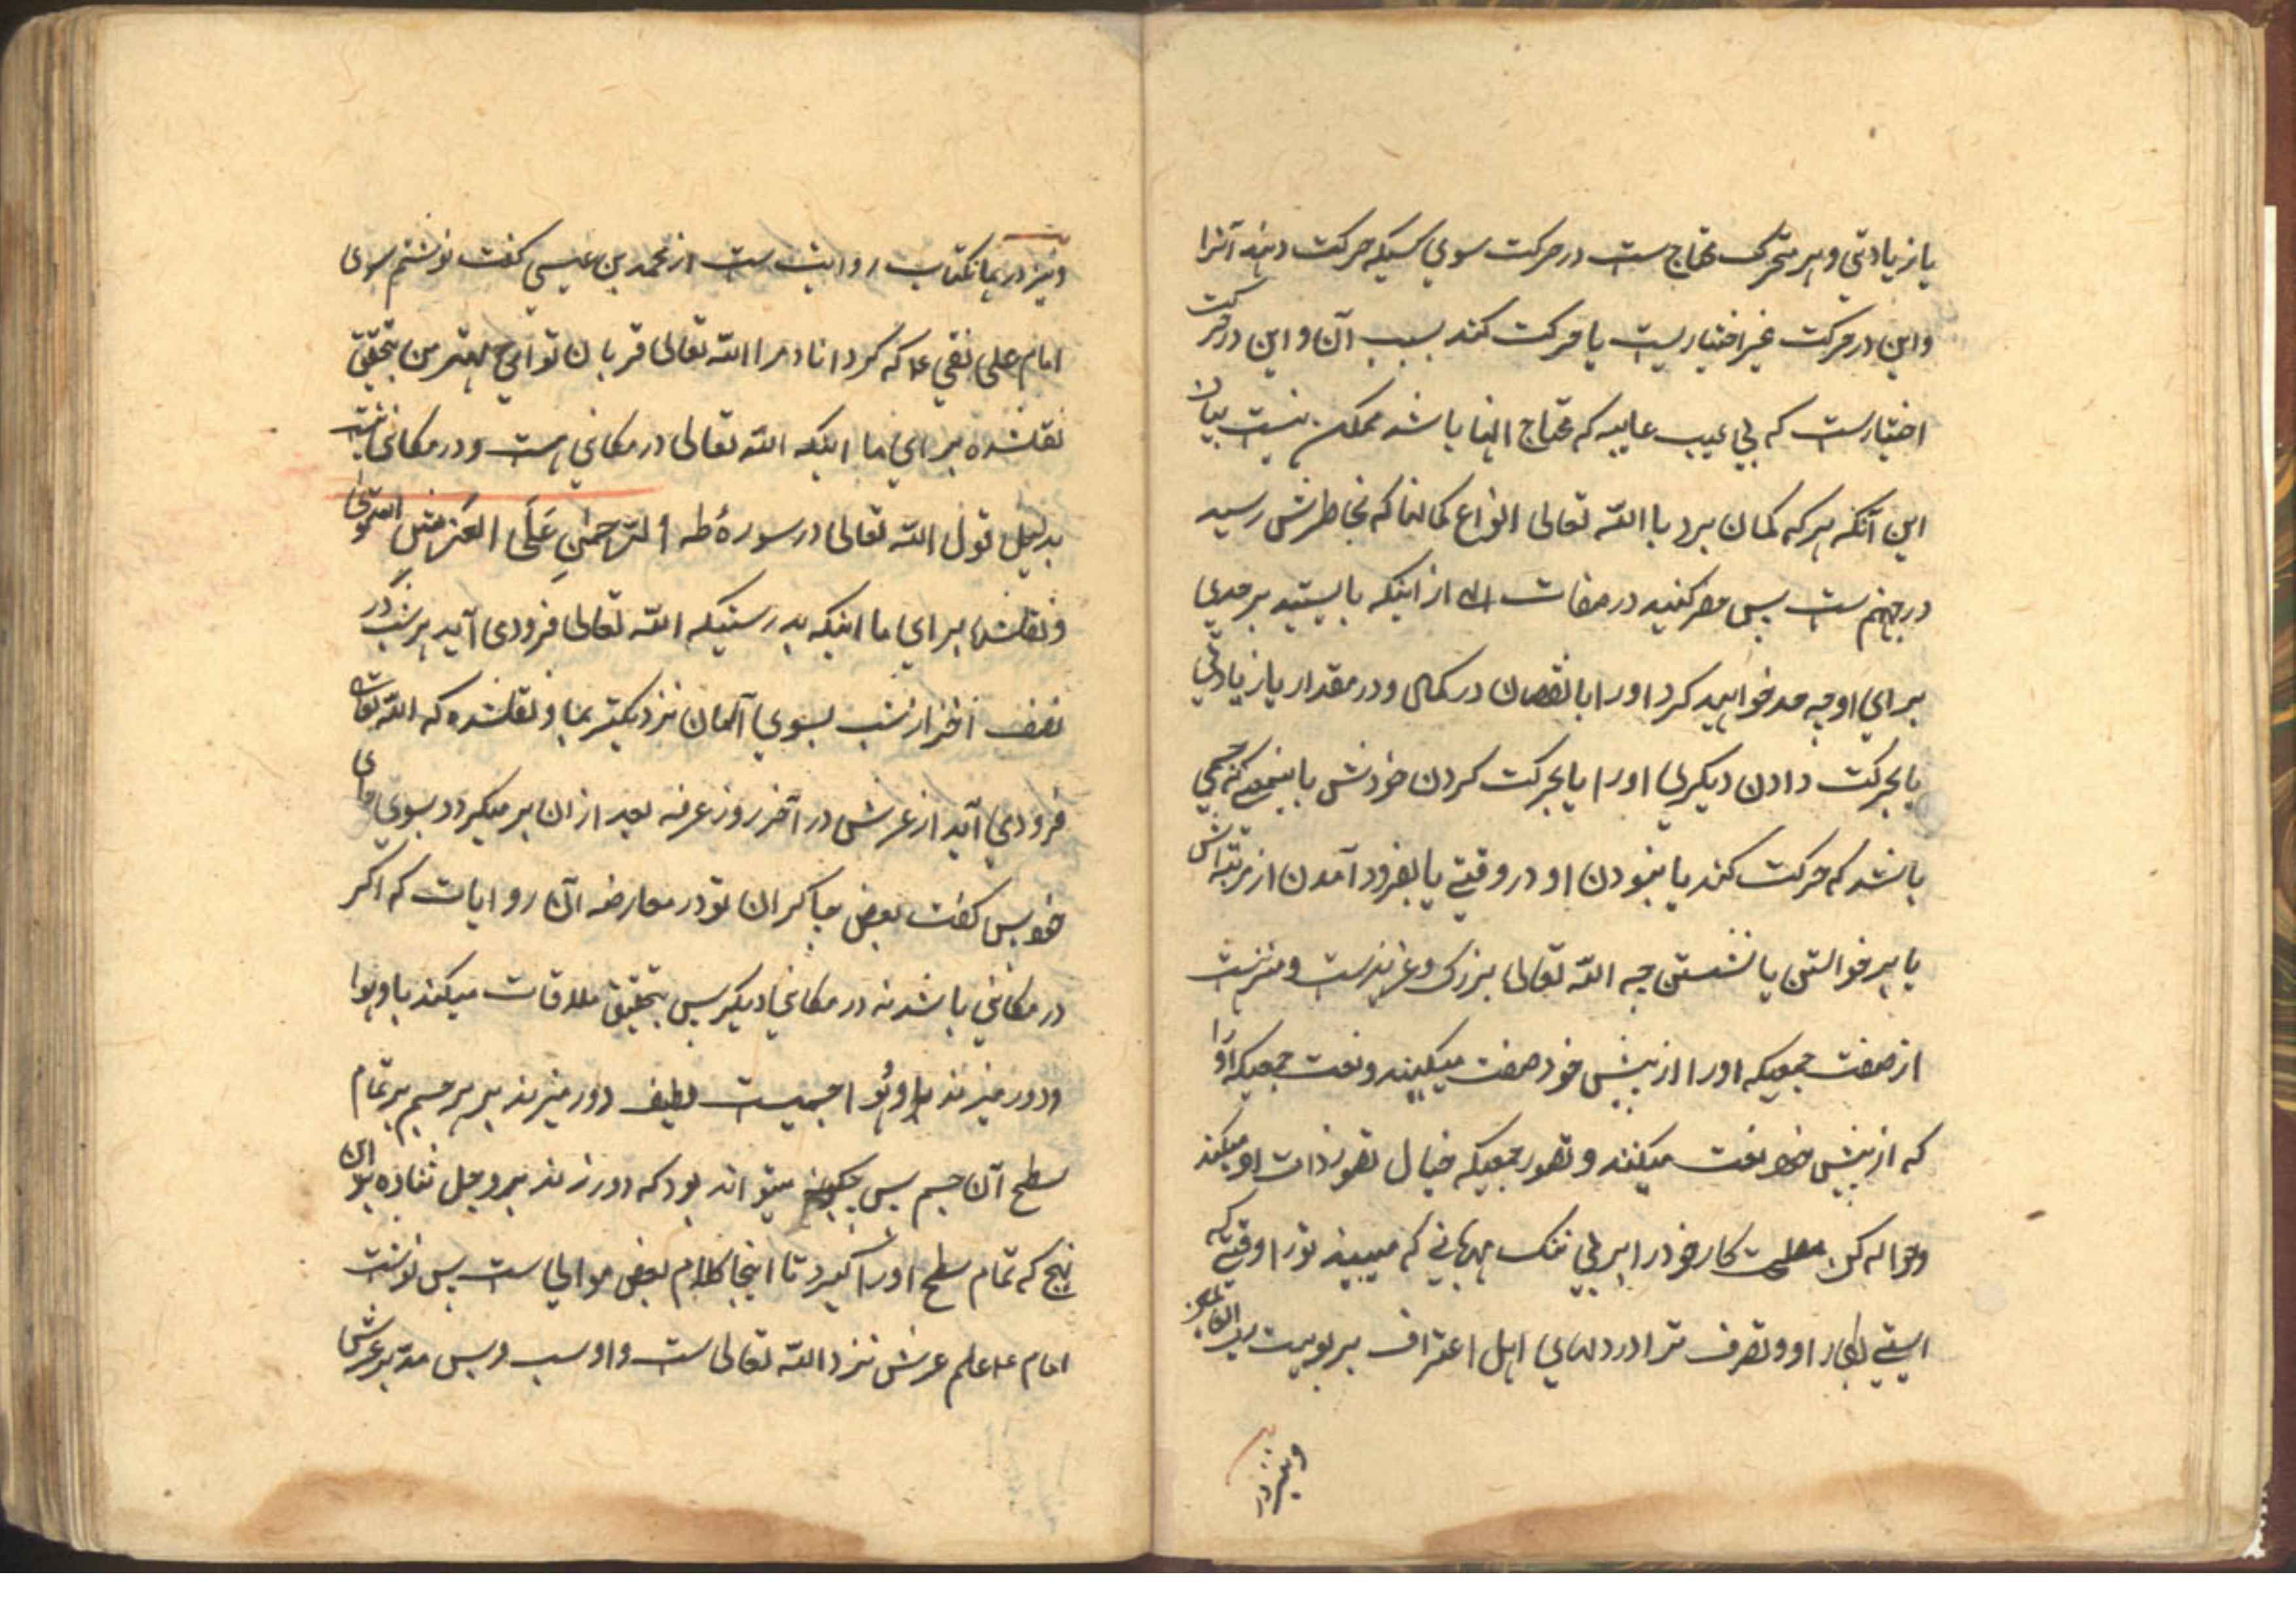 یا زیادتی و هر متحرک محتاج ست در حرکت سوی کسیکه حرکت دهد آنرا
و این در حرکت غیر اختیاریست یا حرکت کند بسبب آن و این در حرکت
اختیارست که بی عیب علیه که محتاج الیها باشد ممکن نیست بیان
این آنکه هر که کمان برد با الله تعالی انواع کمانها که بخاطرش رسید
در جهنم ست پس حذر کنید در صفات الله از اینکه بایستید بر حدی
برای او چه حد خواهید کرد او را با نقصان در کمال و در مقدار یا زیادتی
یا بحرکت دادن دیکری او را یا بحرکت کردن خودش باینمعنی که جسمی
باشد که حرکت کند یا نبودن او در وقتی یا بفرود آمدن از مرتبه اش
یا برخواستن یا نشستن چه الله تعالی بزرک و عزیزست و منزهست
از صفت جمعیکه او را از پیش خود صفت میکنند و نعت جمعیکه او را
که از پیش خود نعت میکنند و تصور جمعیکه خیال تصور ذات او میکنند
و حواله کن کار خود را بر مهربانی که میبیند تو را وقتیکه
ایستی بکار او و تصرف ترا در دلهای اهل اعتراف بربوبیت
و نیز در
و نیز در همانکتاب روایتست از محمد بن عیسی کفت نوشتم سوی
امام علی نقی ع که کرداناد مرا الله تعالی قربان تو ای مهتر من بتحقیق
نقلشده برای ما اینکه الله تعالی در مکانی هست و در مکانی نیست
بدلیل قول الله تعالی در سورۀ طه الرحمن علی العرش استوی
و نقلشده برای ما اینکه بدرستیکه الله تعالی فرودی آید هر شب در
نصف آخر از شب بسوی آسمان نزدیکتر بما و نقلشده که الله تعالی
فرودی آید از عرش در آخر روز عرفه بعد از ان بر میکردد بسوی جای
خود پس کفت بعض چاکران تو در معارضه آن روایات که اکر
در مکانی باشد نه در مکانی دیکر پس بتحقیق ملاقات میکند با او هوا
و دور میزند با او و هوا جسمیست لطیف دور میزند بر هر جسم بر تمام
سطح آن جسم پس چکونه میتواند بود که دور زند بر و جل ثناؤه بر این
نهج که تمام سطح او را کیرد تا اینجا کلام بعض موالی است پس نوشت
امام ع علم عرش نزد الله تعالی ست و او ست و بس مدبر عرش